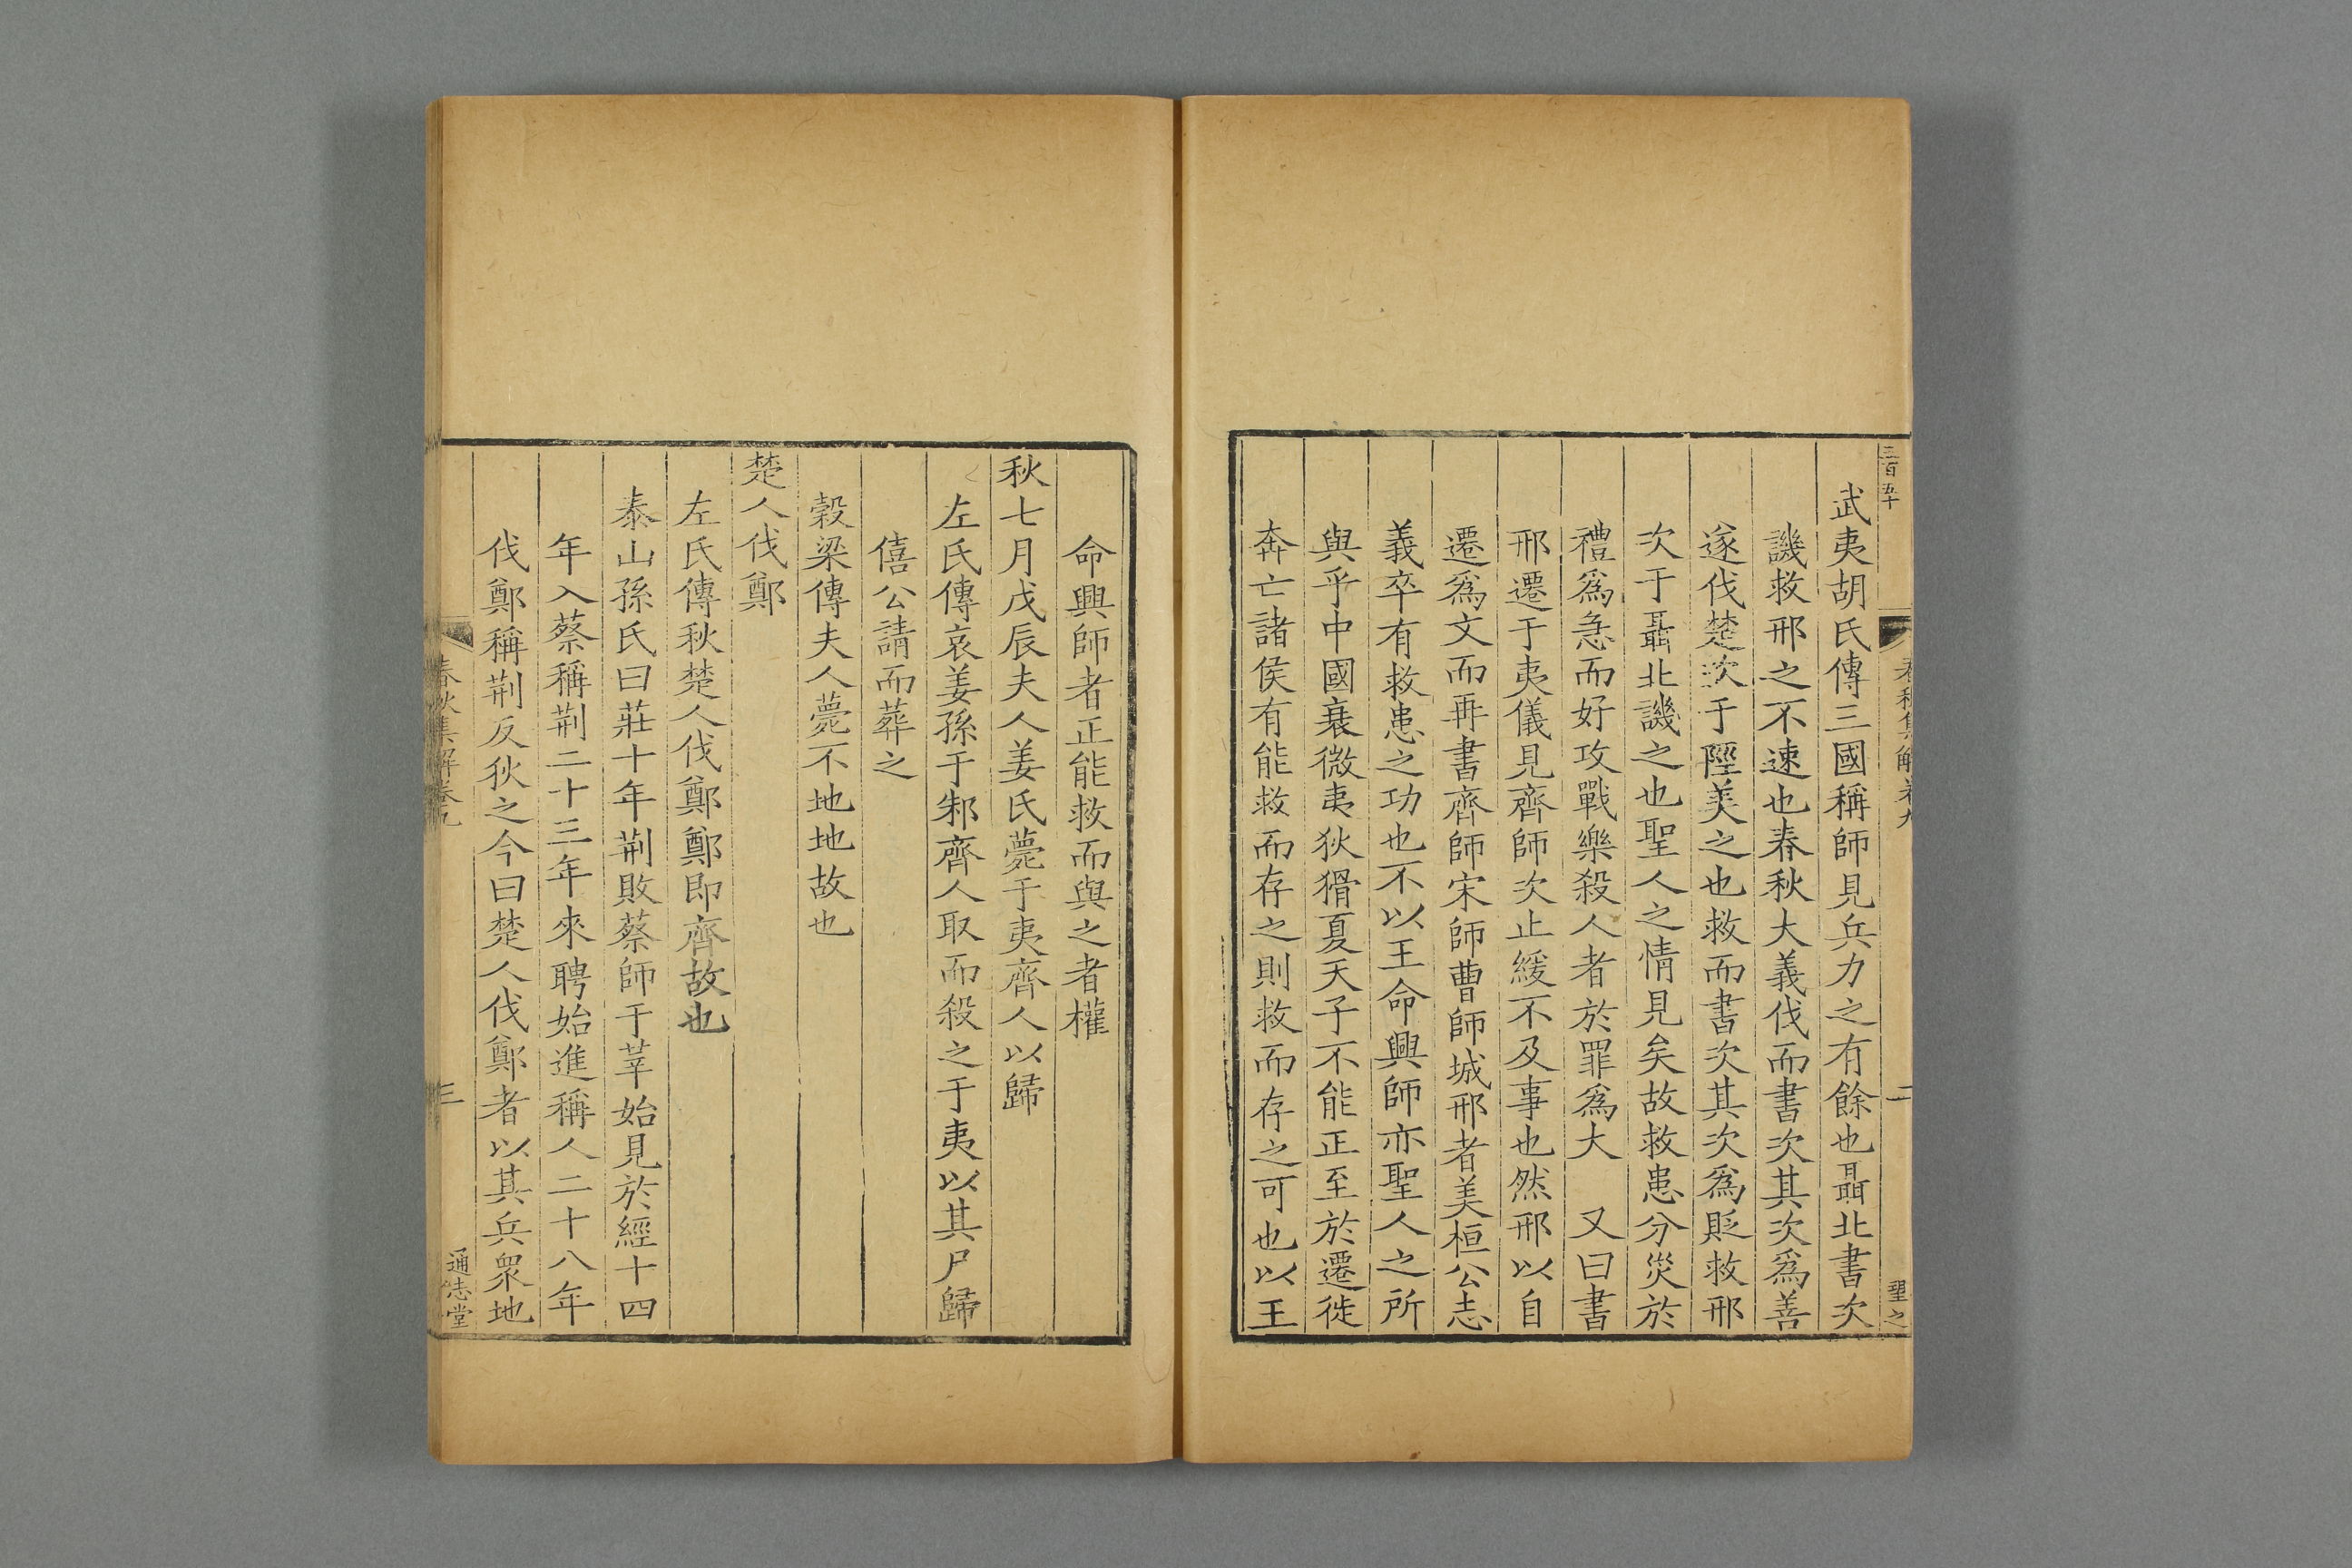 三百五十
春秋集解卷九
二
聖之
武夷胡氏傳三國稱師見兵力之有餘也聶北書次
譏救邢之不速也春秋大義伐而書次其次爲善
遂伐楚次于陘美之也救而書次其次爲貶救邢
次于聶北譏之也聖人之情見矣故救患分災於
禮爲急而好攻戰樂殺人者於罪爲大　又曰書
邢遷于夷儀見齊師次止緩不及事也然邢以自
遷爲文而再書齊師宋師曹師城邢者美桓公志
義卒有救患之功也不以王命興師亦聖人之所
與乎中國衰微夷狄猾夏天子不能正至於遷徙
奔亡諸侯有能救而存之則救而存之可也以王
命興師者正能救而與之者權
秋七月戊辰夫人姜氏薨于夷齊人以歸
左氏傳哀姜孫于邾齊人取而殺之于夷以其尸歸
僖公請而葬之
穀梁傳夫人薨不地地故也
楚人伐鄭
左氏傳秋楚人伐鄭鄭即齊故也
泰山孫氏曰莊十年荆敗蔡師于莘始見於經十四
年入蔡稱荆二十三年來聘始進稱人二十八年
伐鄭稱荆反狄之今曰楚人伐鄭者以其兵眾地
春秋集解卷九
三
通志堂